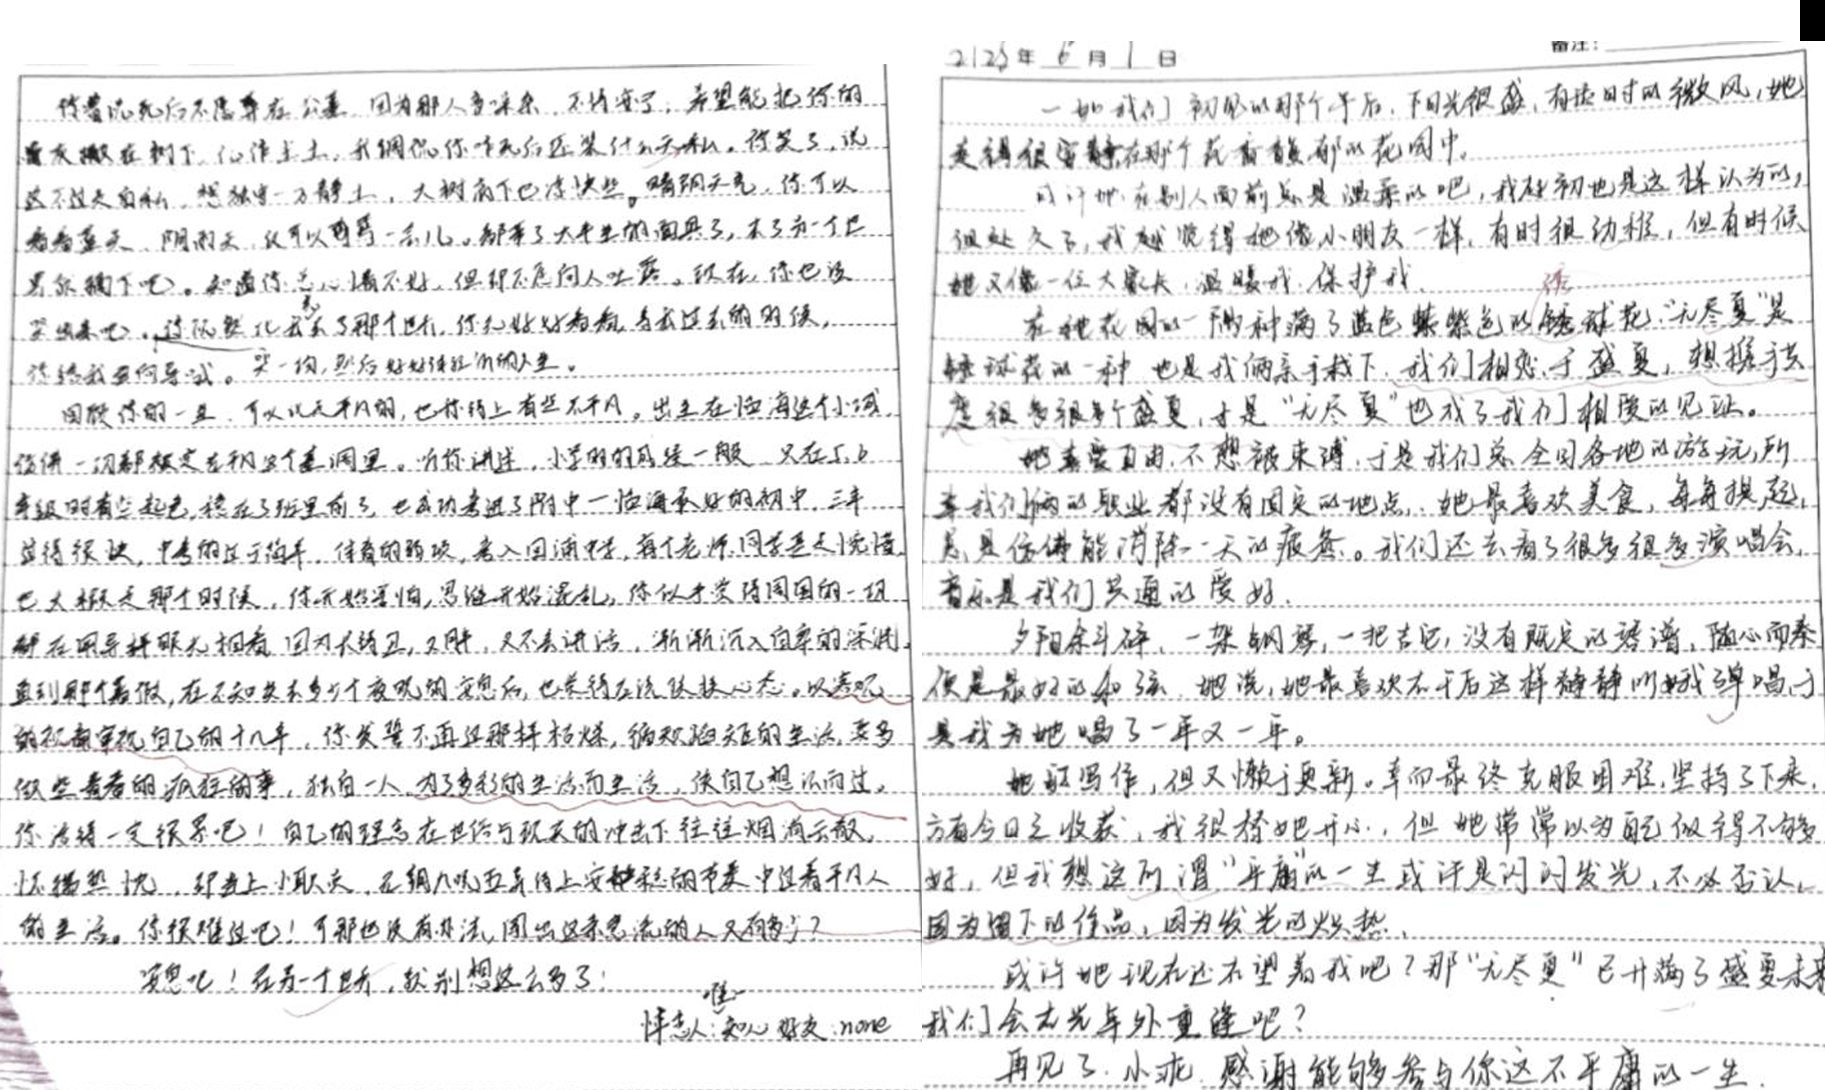 你曾说死后不愿葬在公墓，因为那人多嘈杂，不得安宁，希望能把你的
骨灰撒在树下，化作尘土，我调侃你咋死后还装什么无私。你笑了，说
这不过是自私，想独电一方静土，大树底下也凉快些。晴朗天气，你可以
看看蓝天，阴雨天，仅可以 一会儿。都带了大半生的面具了，在了另一个世
界尔摘下吧。知道你总心情不好，但却不愿向人吐露。现在，你也该
笑出来吧。 我去了那个世界，你先好好看看，等我过去的时候，
你给我当向导哉。 笑一均，然后好好体验 的人生。
回顾你的一生，可以说是平凡的，也称得上有些不平凡。出生在临海这个小城
仿佛一切都 这个 里。听你讲述，小学时的成绩一般，只在5、6
年级时有些起色，稳在了班里前3，也成功考进了附中一临海最好的初中，三年
过得很快，中考的 ，体育的弱项，考入回浦中学，每个老师、同学
也大概是那个时候，你开始害怕，思维开始混乱，你似乎觉得周围的一切
都在用异样眼光相看，因为长得丑，又胖，又不善讲话，渐渐沉入自卑的深渊。
直到那个暑假，在不知失去多少个夜晚的安息后，也 心态。以
的视角审视自己的十八年，你发誓不再过那样枯燥，循规蹈矩的生活，要多
做些青春的疯狂的事，独自一人，为了多彩的生活而生活，依自己想法而过。
你活得一定很累吧！自己的理念在世俗与现实的冲击下往往烟消云散。
怀揣热忱，却当上小职员，在朝九晚五算得上安稳的节奏中过着平凡人
的生活。你很难过吧！可那也没有办法，闯出这条急流的人又有多少？
安息吧！在另一个世界，就别想这么多了！
唯一
悼念人：知心好友：none
2123年 6 月 1 日
备注：
一如我们初见的那个午后，下阳光很盛，有 时的微风，她
走得很安静，在那个花香馥郁的花园中。
或许她在别人面前总是温柔的吧，我起初也是这样认为的，
但处久了，我越觉得她像小朋友一样，有时很幼稚，但有时候
她又像一位大家长，温暖我，保护我。
在她花园的一隅种满了蓝色紫紫色的绣球花，“无尽夏”是
绣球花的一种，也是我俩亲手栽下，我们相恋于盛夏，想携手共
度很多很多个盛夏，于是“无尽夏”也成了我们相爱的见证。
她喜爱自由，不想被束缚，于是我们总全国各地的游玩，所
幸我们俩的职业都没有固定的地点，她最喜欢美食，每每提起，
总是仿佛能消除一天的疲惫。我们还去看了很多很多演唱会，
音乐是我们共通的爱好。
夕阳余斗碎，一架钢琴，一把吉它，没有既定的琴谱，随心而奏
便是最好的和弦，她说，她最喜欢在午后这样静静听我弹唱，于
是我为她唱了一年又一年。
她酷写作，但又懒于更新。幸而最终克服困难，坚持了下来，
方有今日之收获，我很替她开心，但她常常以为自己做得不够
好，但我想这所谓“平庸”的一生或许是闪闪发光，不必否认，
因为留下的作品，因为发光的炽热。
或许她现在还在望着我吧？那“无尽夏”已开满了盛夏未来
我们会在光年外重逢吧？
再见了，小乖，感谢能够参与你这不平庸的一生